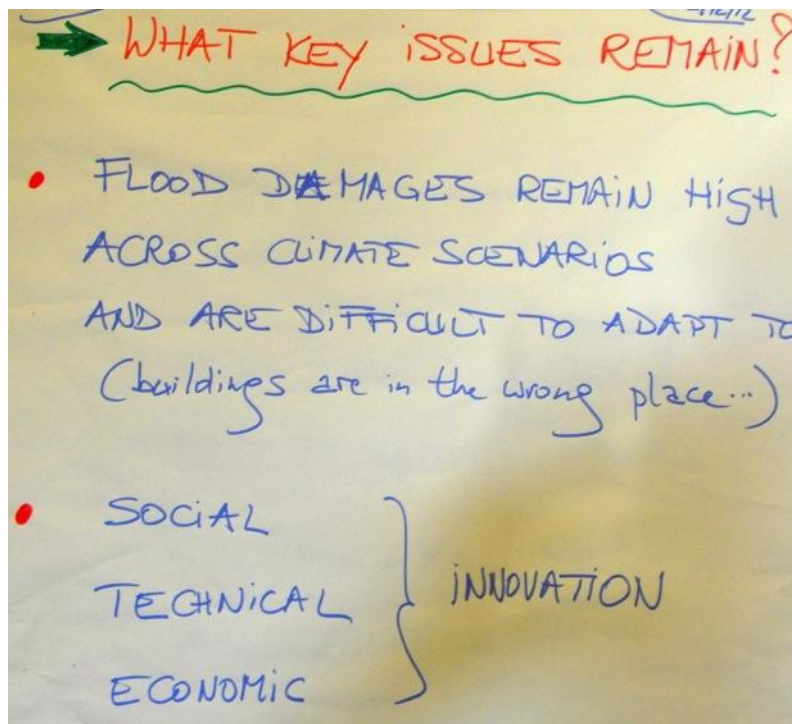 WHAT KEY ISSUES REMAIN?
• FLOOD DAMAGES REMAIN HIGH
ACROSS CLIMATE SCENARIOS
AND ARE DIFFICULT TO ADAPT TO
(buildings are in the wrong place...)
• SOCIAL
TECHNICAL
INNOVATION
ECONOMIC